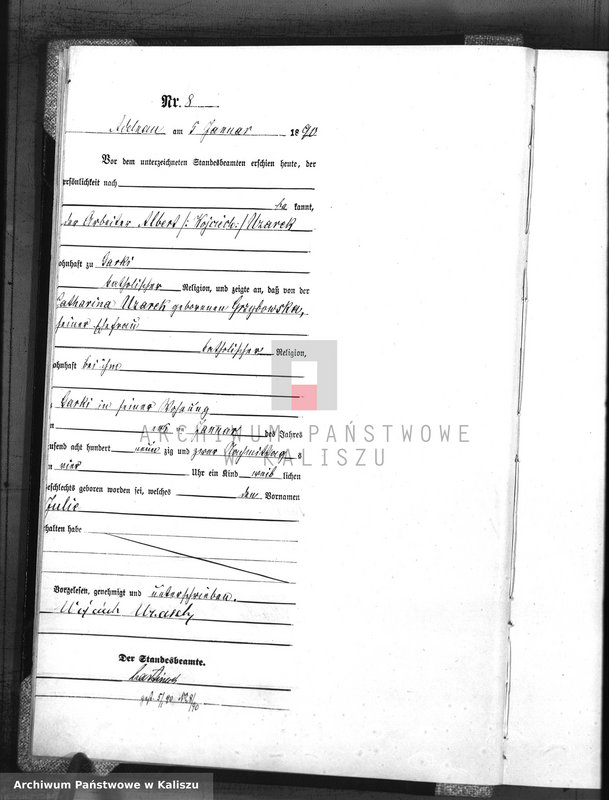 Nr. 8
Adelnau am 5 Januar 1890
Vor dem unterzeichneten Standesbeamten erschien heute, der
ersönlichkeit nach
be kannt,
der Arbeiter Albert /: Wojciech :/ Uzarek
ohnhaft zu Garki
katholischer Religion, und zeigte an, daß von der
Catharina Uzarek geborenen Grzybowska,
seiner Ehefrau
katholischer Religion,
ohnhaft bei ihm
Garki in seiner Wohnung
Januar des Jahres
usend acht hundert neun zig und zwar Nachmittag s
vier Uhr ein Kind weib lichen
eschlechts geboren worden sei, welches den Vornamen
Julie
halten habe
Vorgelesen, genehmigt und unterschrieben.
Wojciech
Der Standesbeamte.
5/90 No 8/90
ARCHIWUM PAŃSTWOWE
W KALISZU
Archiwum Państwowe w Kaliszu